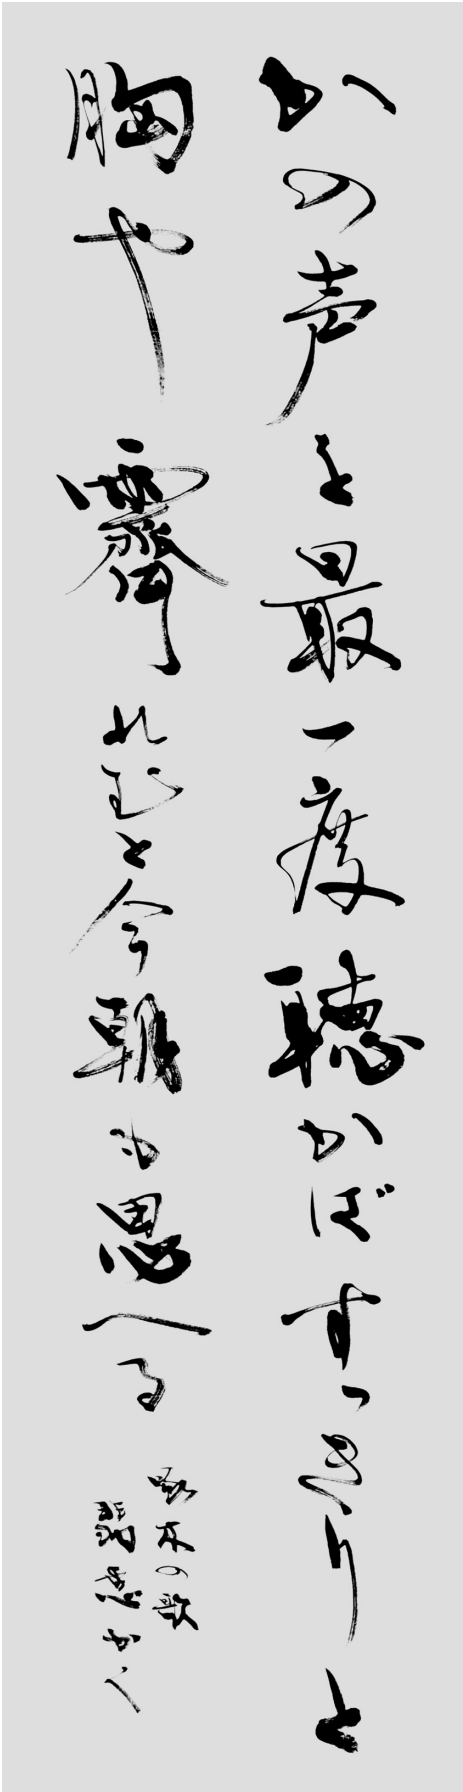 かの声を最一度聴かばすっきりと
胸や霽れむと今朝も思へる
啄木の歌
かく